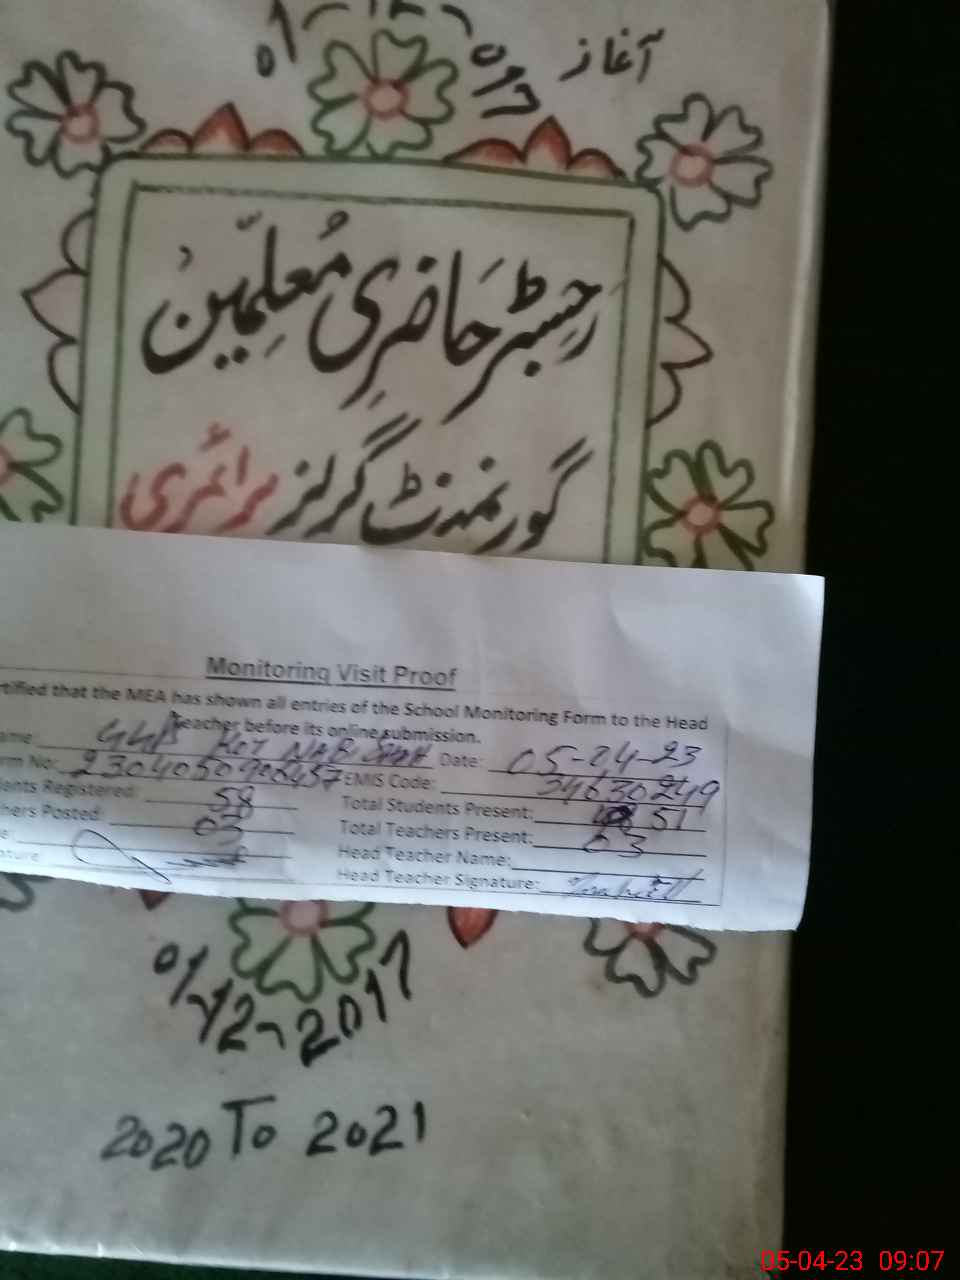 آغاز
رجسٹر حاضری معلمین
گورنمنٹ گرلز پرائمری
Monitoring Visit Proof
rtified that the MEA has shown all entries of the School Monitoring Form to the Head
Teacher before its online submission.
ame Date: 05-04-23
rm No: EMIS Code: 34630249
ents Registered: 58 Total Students Present: 51
hers Posted: 03 Total Teachers Present: 03
e: Head Teacher Name:
ature Head Teacher Signature:
01-12-2017
2020 To 2021
05-04-23 09:07